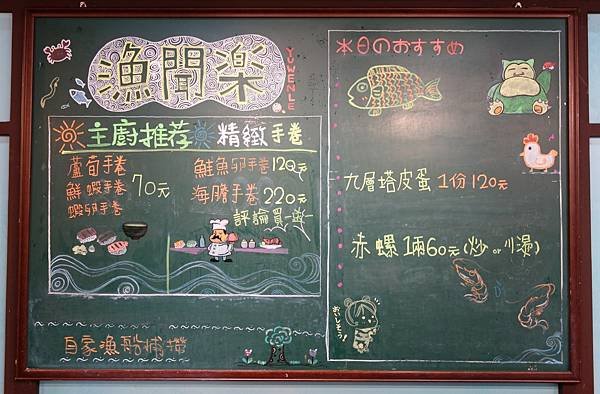 漁聞楽
YUWENLE
主廚推荐 精緻手卷
蘆荀手卷
鮮蝦手卷 70元
蝦卵手卷
鮭魚卵手卷120元
海膽手卷220元
評論買一送一
自家漁船捕撈
本日のおすすめ
九層塔皮蛋 1份120元
赤螺1兩60元(炒or川燙)
おいしそう!